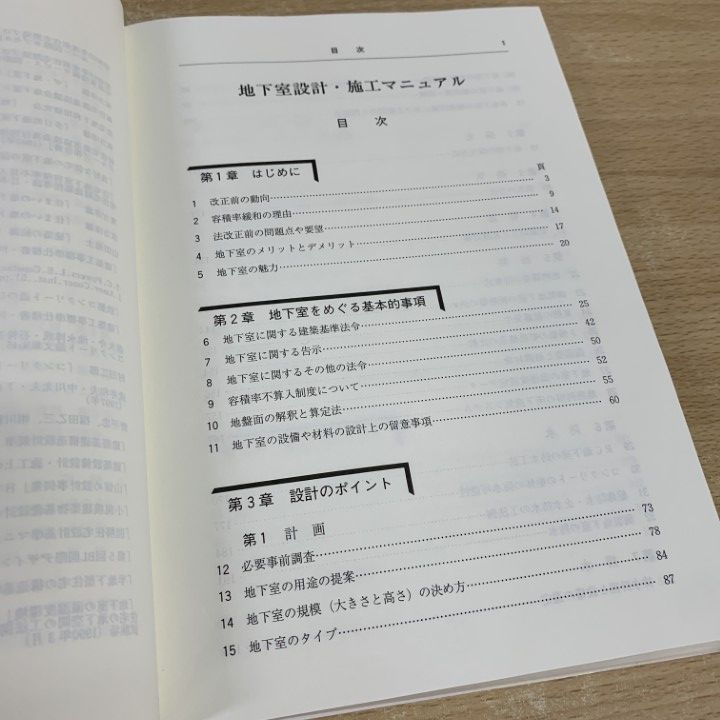 目　次
1
地下室設計・施工マニュアル
目　次
第1章　はじめに
頁
1　改正前の動向……3
2　容積率緩和の理由……9
3　法改正前の問題点や要望……14
4　地下室のメリットとデメリット……17
5　地下室の魅力……20
第2章　地下室をめぐる基本的事項
6　地下室に関する建築基準法令……25
7　地下室に関する告示……42
8　地下室に関するその他の法令……50
9　容積率不算入制度について……52
10　地盤面の解釈と算定法……55
11　地下室の設備や材料の設計上の留意事項……60
第3章　設計のポイント
第1　計　画
12　必要事前調査……73
13　地下室の用途の提案……78
14　地下室の規模（大きさと高さ）の決め方……84
15　地下室のタイプ……87